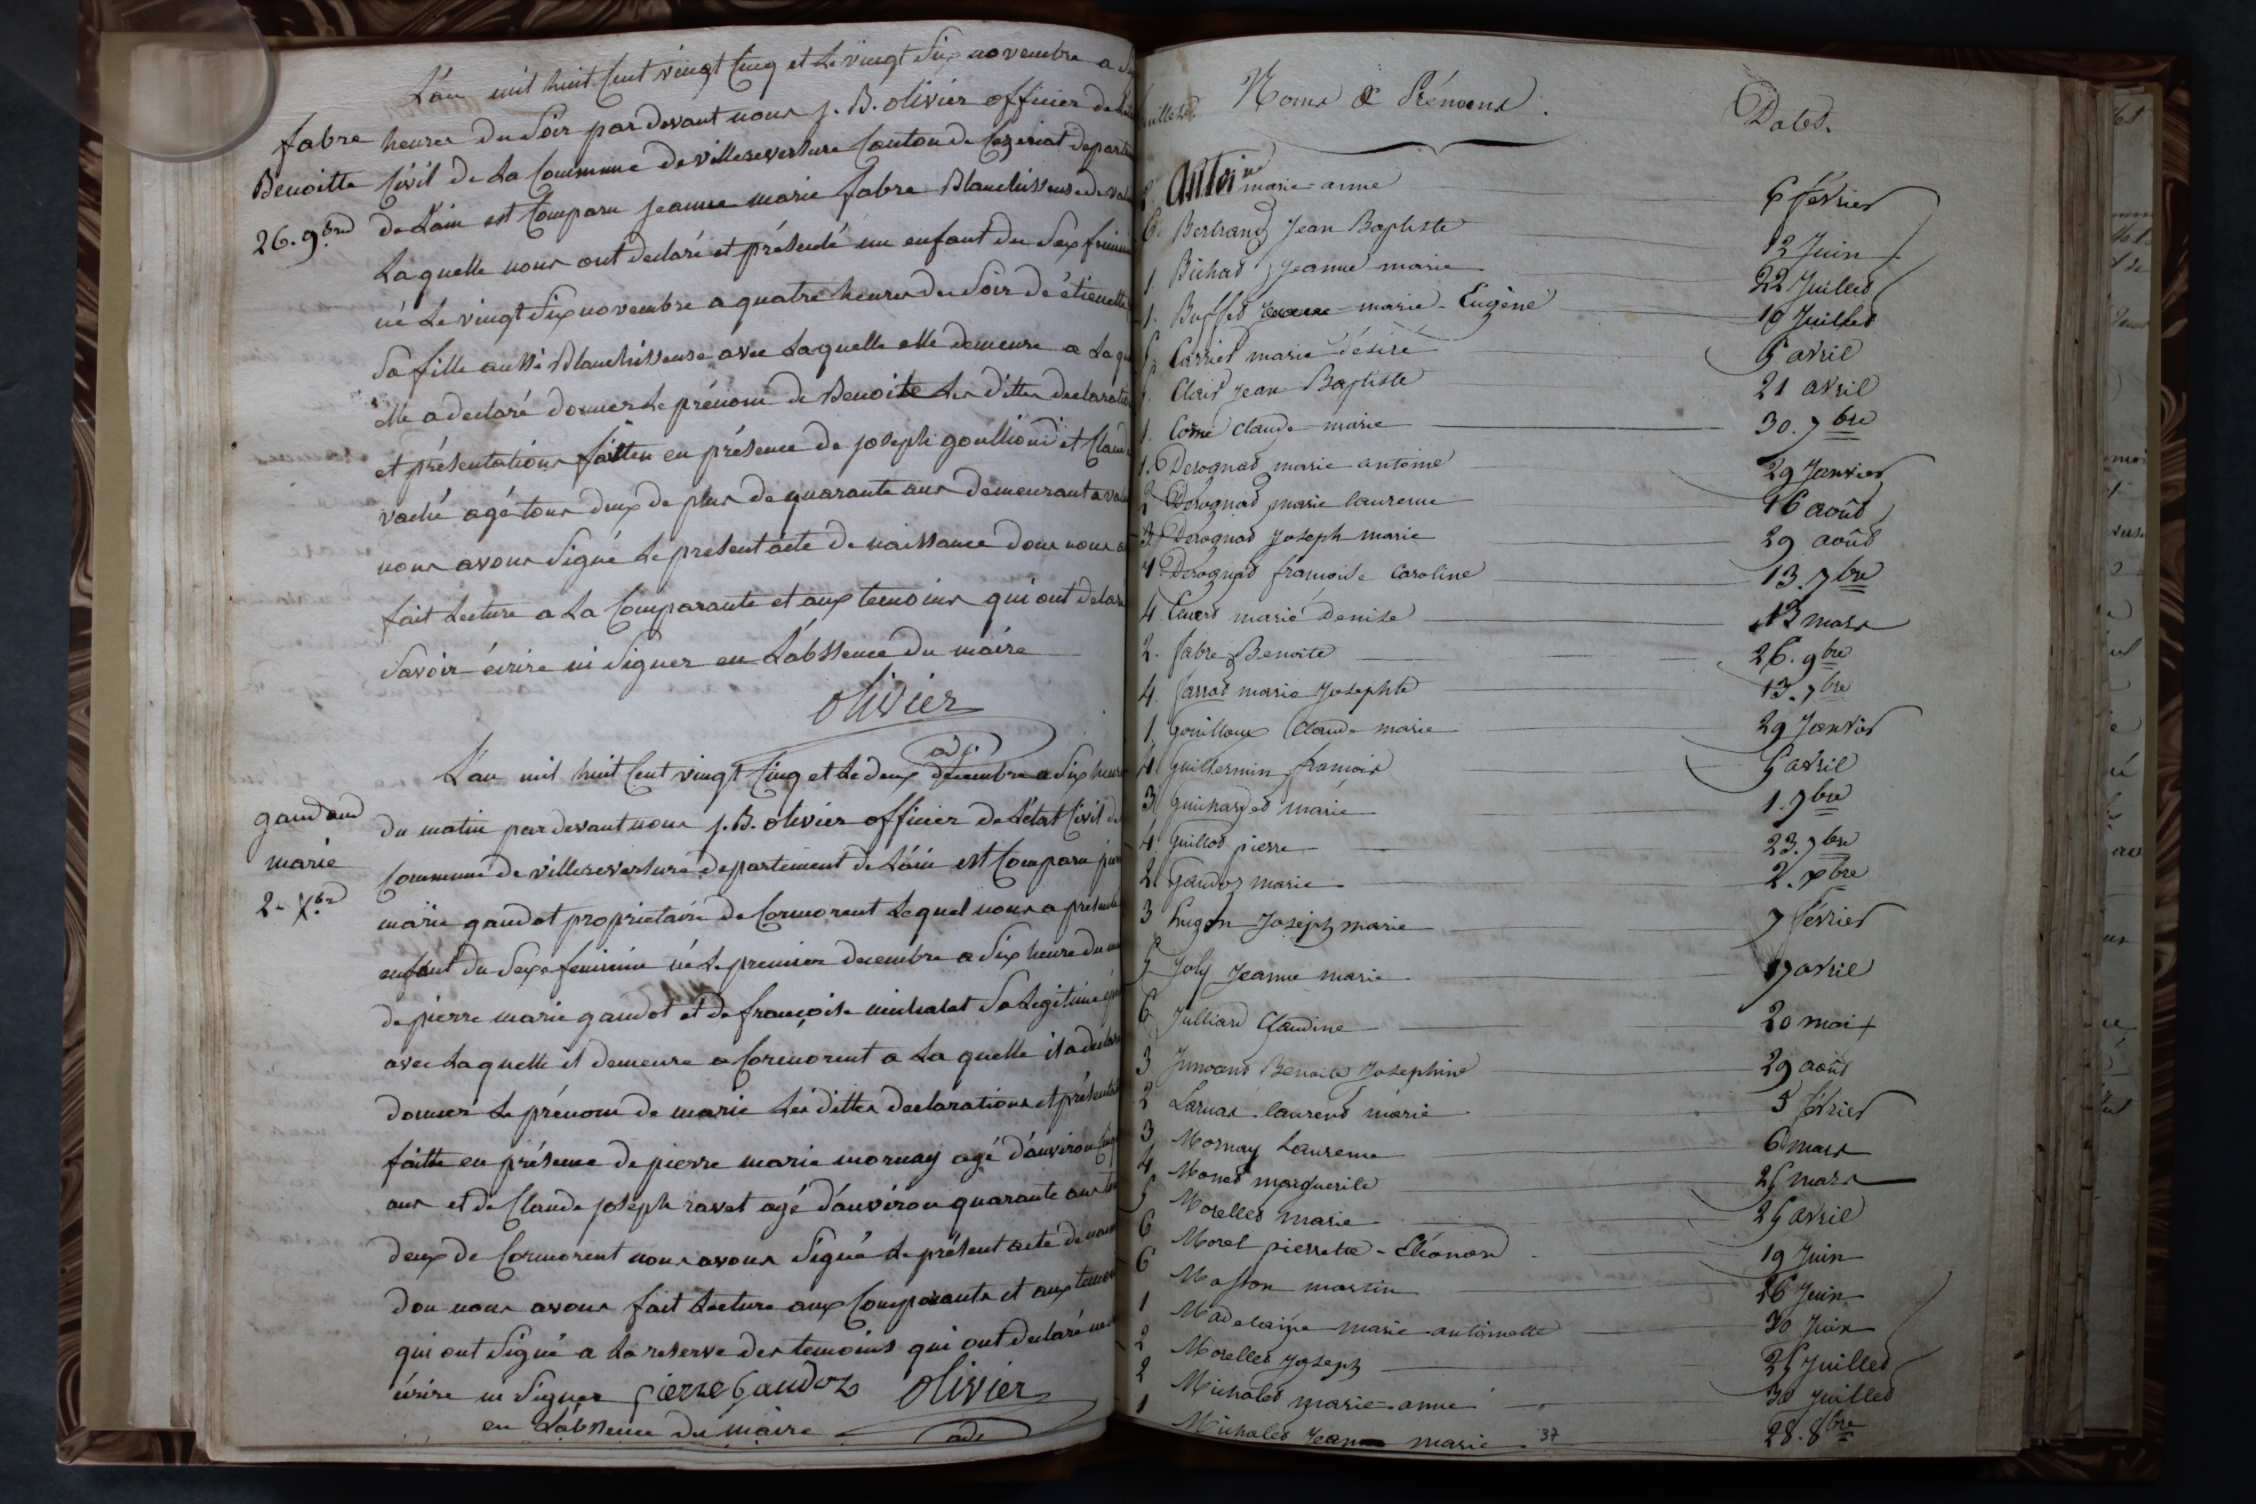 L'an mil huit Cent vingt Cinq et Le vingt Six novembre a
fabre
Benoitte
26. 9bre
heures du Soir par devant nous J. B. olivier officier de
Civil de La Commune de villereversure Canton de Cezeriat depart
de L'ain est Comparu jeanne marie fabre Blanchisseuse de
Laquelle nous ont declaré et présenté un enfant du Sexe
né Le vingt Six novembre a quatre heures du Soir de étienette
Sa fille aussi Blanchisseuse avec Laquelle elle demeure a Laqu
elle a declaré donner Le prénom de Benoite Les dittes declaratio
et présentations faittes en présence de joseph goullioud et Claud
vaché agé tous deux de plus de quarante ans demeurant a
nous avons Signé Le present acte de naissance dont nous a
fait Lecture a La Comparante et aux temoins qui ont declar
Savoir écrire ni Signer en L'abssence du maire
olivier
adj.
L'an mil huit Cent vingt Cinq et Le deux decembre a Six heure
gaudand
marie
2. Xbre
du matin par devant nous J. B. olivier officier de L'état Civil de
Commune de villereversure departement de L'ain est Comparu
marie gaudet proprietaire de Cormorent Lequel nous a présenté
enfant du Sexe feminin né Le premier decembre a Six heure du
de pierre marie gaudet et de françoise michalet Sa Legitime
avec Laquelle il demeure a Cormorent a Laquelle il a declar
donner Le prénom de marie Les dittes declarations et présenta
faitte en présence de pierre marie mornay agé d'anviron
ans et de Claude joseph ravet agé d'anviron quarante ans
deux de Cormorent nous avons Signé Le présent acte de nais
don nous avons fait Lecture aux Comparants et aux temoi
qui ont Signé a La reserve des temoins qui ont declaré
écrire ni Signer pierre Gaudoz olivier
en L'abssence du maire adj
Noms & Prénoms. Dates.
Antoin marie-anne 6 février
6. Bertrand Jean Baptiste 12 Juin
1. Bichad Jeanne marie 22 Juillet
1. Buffet marie-Eugène 10 Juillet
5 Carrier marie désiré 5 avril
Clair Jean Baptiste 21 avril
1. Come Claude marie 30. 7bre
1. Derognat marie antoine 29 Janvier
2 Derognat marie laurence 16 août
3 Derognat Joseph marie 29 août
4 Derognat françoise Caroline 13. 7bre
4 marie denise 13 mars
2. fabre Benoite 26. 9bre
4 farrat marie Josephte 13. 7bre
1. Gouilloux Claude marie 29 Janvier
4 Guillermin françois 5 avril
3 Guichardet marie 1. 7bre
4 Guillot pierre 23. 7bre
2 Gaudoz marie 2. Xbre
3 hugon Joseph marie 7 février
5 Joly Jeanne marie 17 avril
6 Julliard Claudine 20 mai
3 Benoite Josephine 29 août
2 Larnas laurent marie 5 février
3 Mornay Laurence 6 mars
4 Monet marguerite 25 mars
5 Morellet marie 25 avril
6 Morel pierrette-Eléonor 19 Juin
6 Masson martin 26 Juin
1 Madelaine marie antoinette 30 Juin
2 Morellet Joseph 25 Juillet
2 Michalet marie-anne 30 Juillet
1 Michalet Jean marie 28. 8bre
37